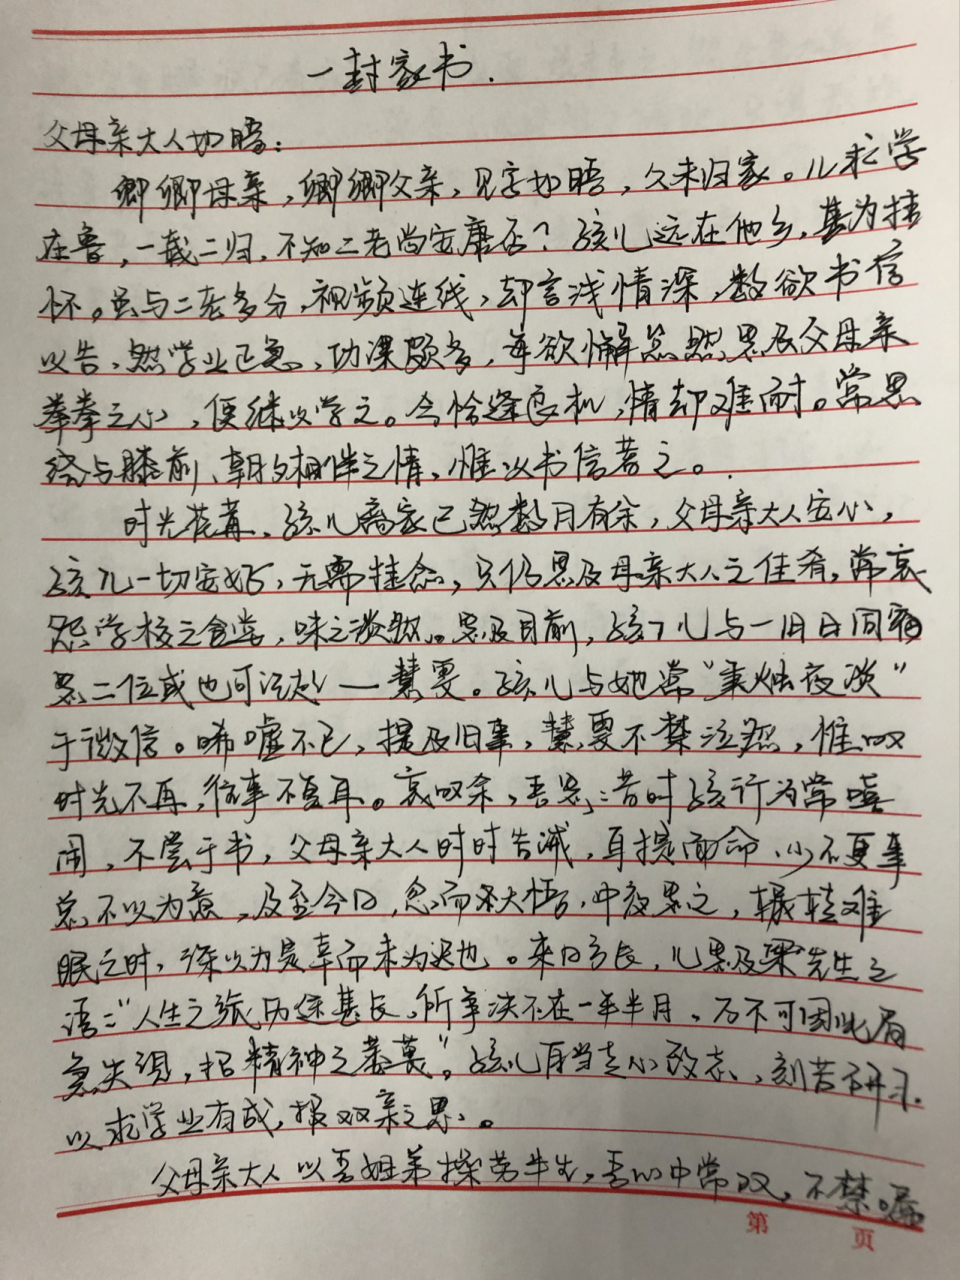 一封家书.
父母亲大人如晤:
卿卿母亲,卿卿父亲,见字如晤,久未归家。儿求学
在鲁,一载二归,不知二老尚安康否?孩儿远在他乡,甚为挂
怀。虽与二老多分,视频连线,却言浅情深,数欲书信
以告,然学业已急,功课颇多,每欲懈怠然思及父母亲
拳拳之心,便继以学之。今恰逢良机,情却难耐。常思
绕与膝前、朝夕相伴之情,惟以书信着之。
时光荏苒,孩儿离家已然数月有余,父母亲大人安心,
孩儿一切安好,无需挂念,只仍思及母亲大人之佳肴,常哀
怨学校之食堂,味之淡然。思及目前,孩儿与一旧日同窗
思二位或也可记起——慧雯。孩儿与她常“秉烛夜谈”
于微信。唏嘘不已,提及旧事,慧雯不禁泣然,惟叹
时光不再,往事不复耳。哀叹余,吾思:昔时孩行为常嘻
闹,不尝于书,父母亲大人时时告诫,耳提面命,少不更事
总不以为意,及至今日,忽而大悟,中夜思之,辗转难
眠之时,深以为是幸而未为迟也。来日方长,儿思及梁先生之
语:“人生之旅历途甚长,所争决不在一年半月,万不可因此着
急失望,招精神之萎葨”。孩儿自当专心致志、刻苦研习.
以求学业有成,报双亲之恩。
父母亲大人以吾姐弟操劳半生,吾心中常叹,不禁。
第 页